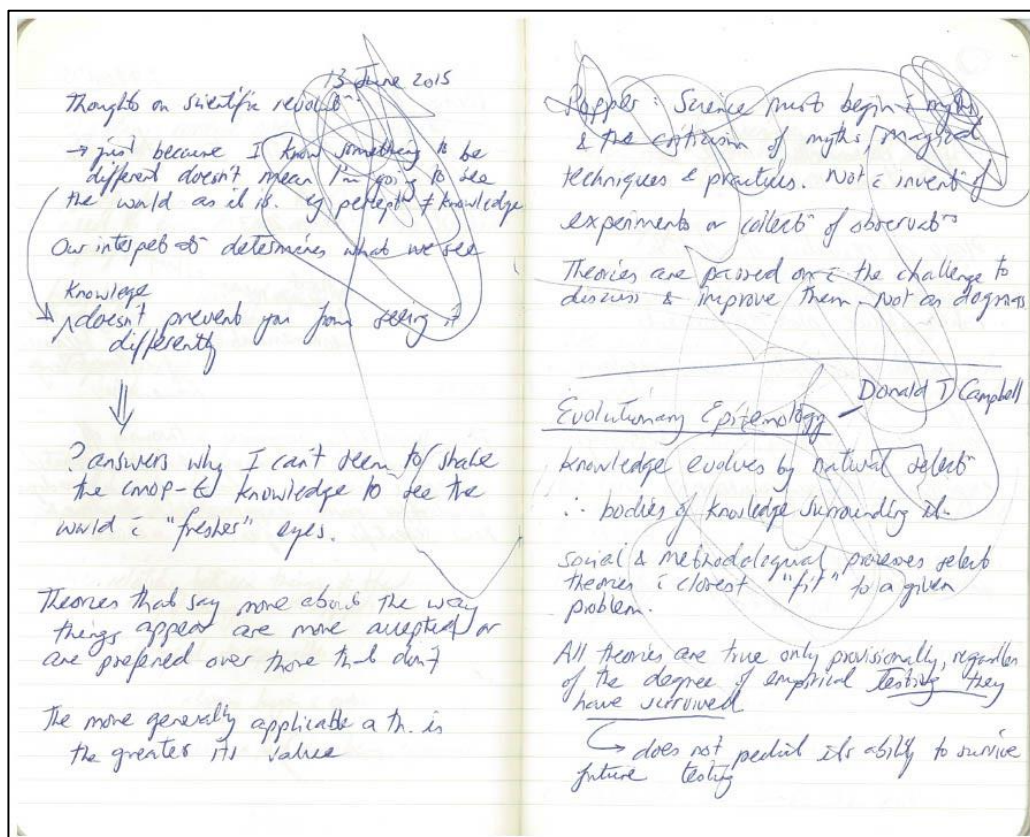 13 June 2015
Thoughts on scientific revolut⁻ⁿ
→ just because I know something to be
different doesn't mean I'm going to see
the world as it is. eg percept⁻ ≠ knowledge
Our interpet determines what we see
Knowledge
doesn't prevent you from seeing it
differently
⇓
? answers why I can't seem to shake
the knowledge to see the
world c̄ "fresher" eyes.
Theories that say more about the way
things appear are more accepted or
are preferred over those that don't
The more generally applicable a th. is
the greater its value
Popper: Science must begin c̄ myths
& the criticism of myths, magical
techniques & practices. Not c̄ invent⁻ of
experiments or collect⁻ of observat⁻ⁿˢ
Theories are passed on c̄ the challenge to
discuss & improve them - Not as dogmas
Donald T Campbell
Evolutionary Epistemology
knowledge evolves by natural select⁻
∴ bodies of knowledge surrounding it.
social & methodological processes select
theories c̄ closest "fit" to a given
problem.
All theories are true only provisionally, regardless
of the degree of empirical testing they
have survived
↳ does not predict its ability to survive
future testing